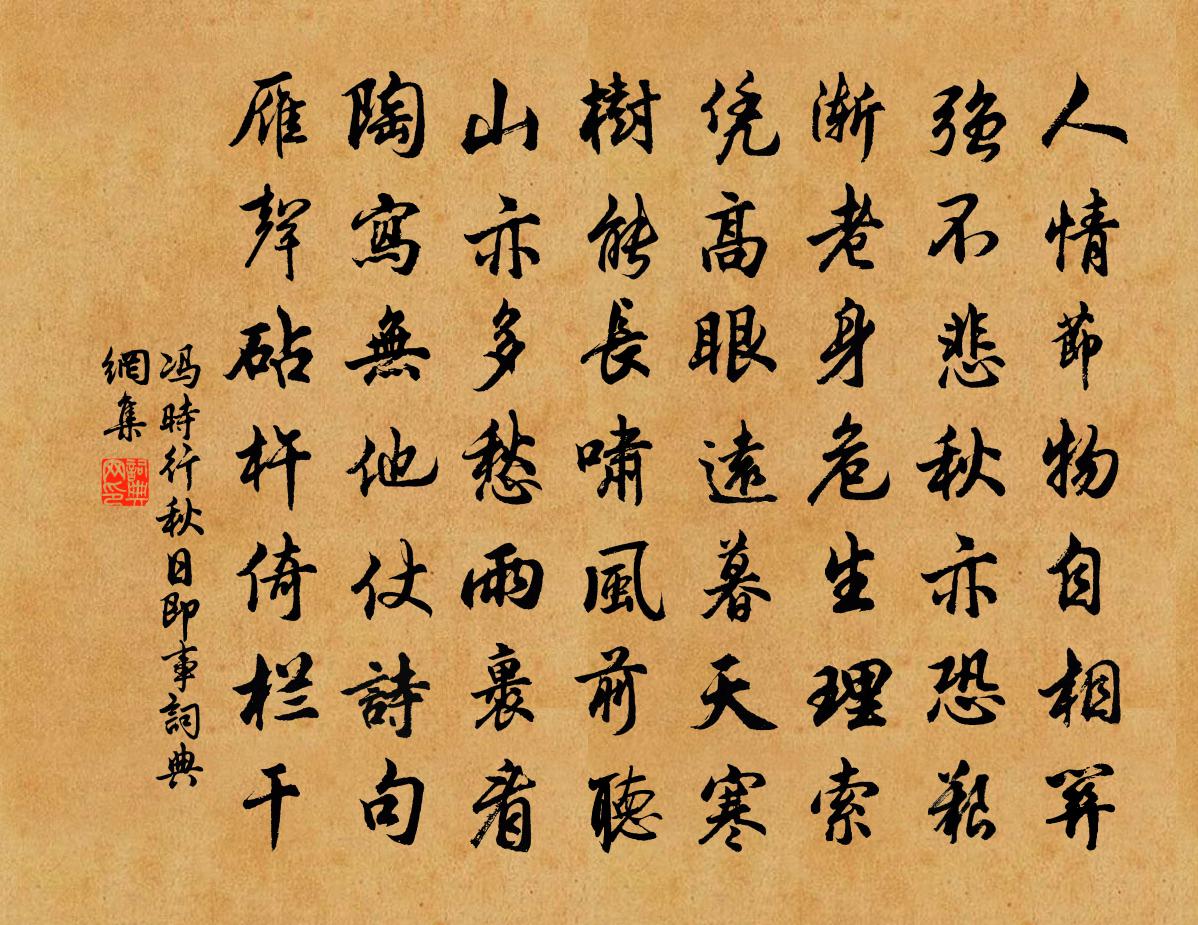 人情節物自相關
強不悲秋亦恐艱
漸老身危生理索
凭高眼遠暮天寒
樹能長嘯風前聽
山亦多愁雨裏看
陶寫無他仗詩句
雁聲砧杵倚栏干
冯時行秋日即事詞典
網集
詞典
网印